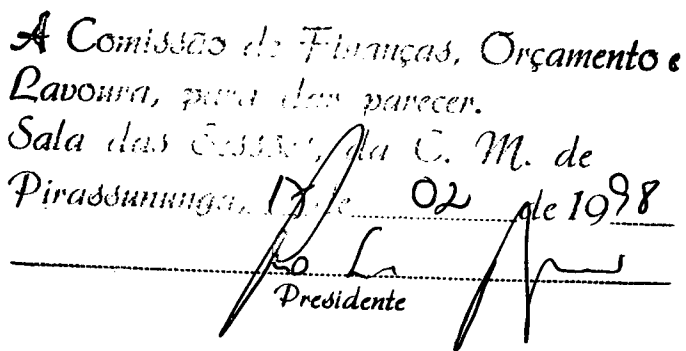 A Comissão de Finanças, Orçamento e
Lavoura, para dar parecer.
Sala das Sessões, da C. M. de
Pirassununga, de 02 de 1998
Presidente